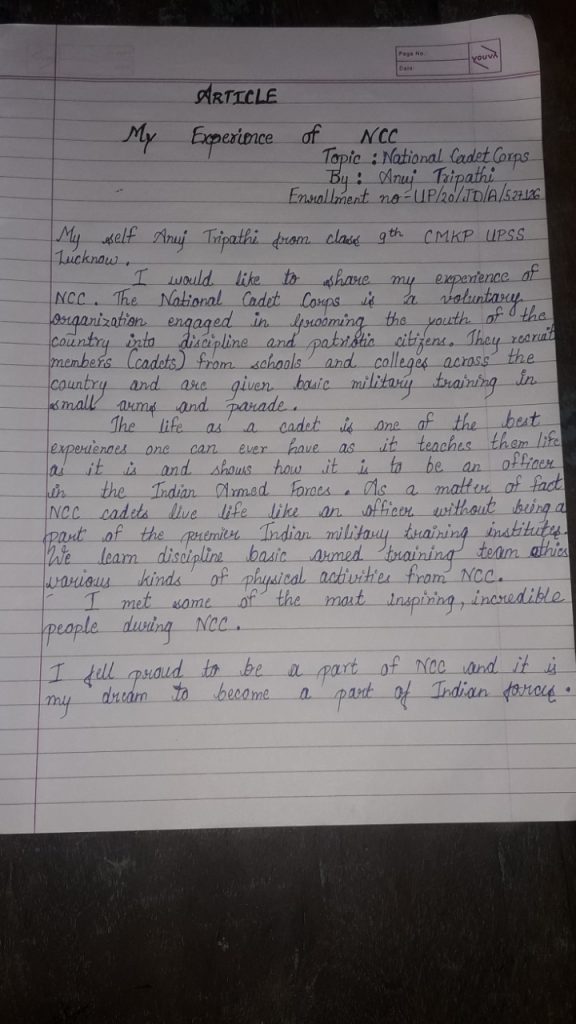 Page No.:
Date:
YOUVA
ARTICLE
My Experience of NCC
Topic : National Cadet Corps
By : Anuj Tripathi
Enrollment no - UP/20/JD/A/527126
My self Anuj Tripathi from class 9th CMKP UPSS
Lucknow.
I would like to share my experience of
NCC. The National Cadet Corps is a voluntary
organization engaged in grooming the youth of the
country into discipline and patriotic citizens. They recruit
members (cadets) from schools and colleges across the
country and are given basic military training in
small arms and parade.
The life as a cadet is one of the best
experiences one can ever have as it teaches them life
as it is and shows how it is to be an officer
in the Indian Armed Forces. As a matter of fact
NCC cadets live life like an officer without being a
part of the premier Indian military training institutes.
We learn discipline basic armed training team ethics
various kinds of physical activities from NCC.
I met some of the most inspiring, incredible
people during NCC.
I fell proud to be a part of NCC and it is
my dream to become a part of Indian forces.